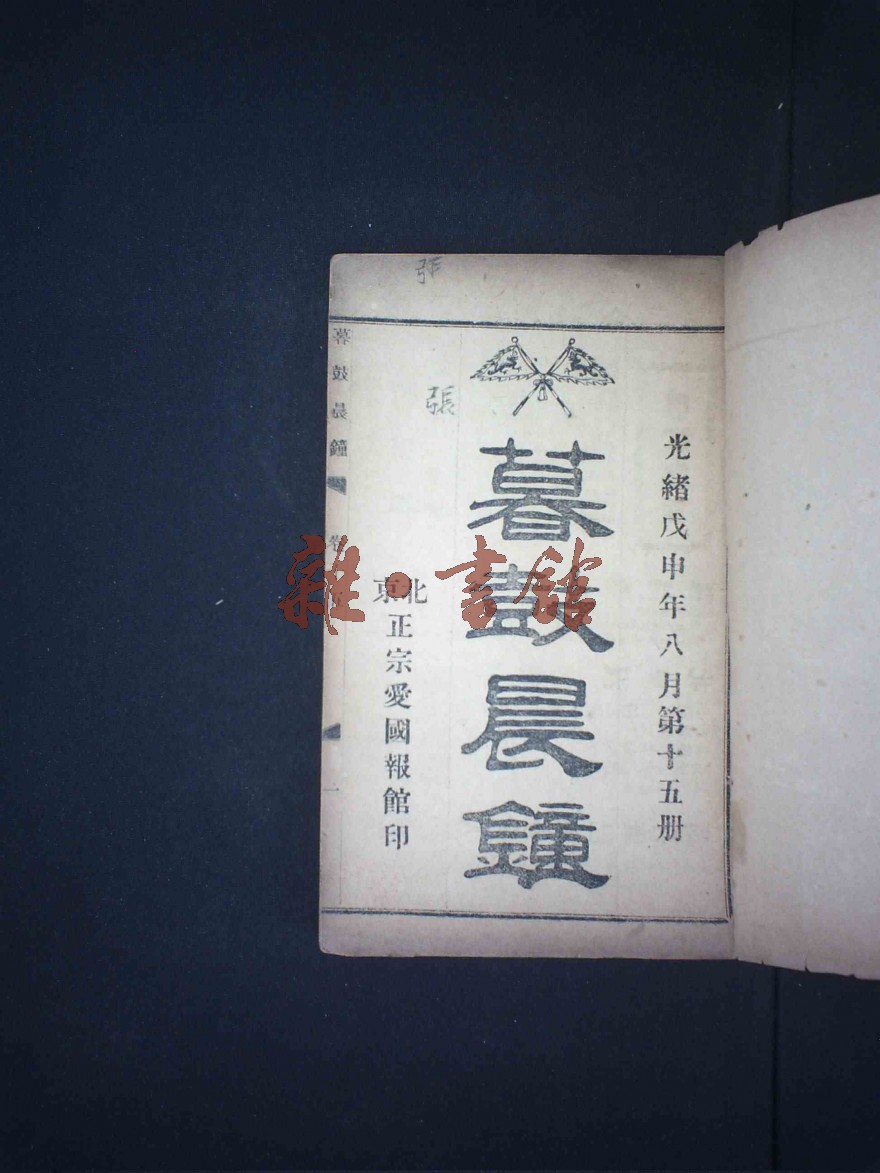 張
張
光緒戊申年八月第十五册
暮鼓晨鐘
北京
正宗愛國報館印
暮鼓晨鐘
卷
一
雜·書館